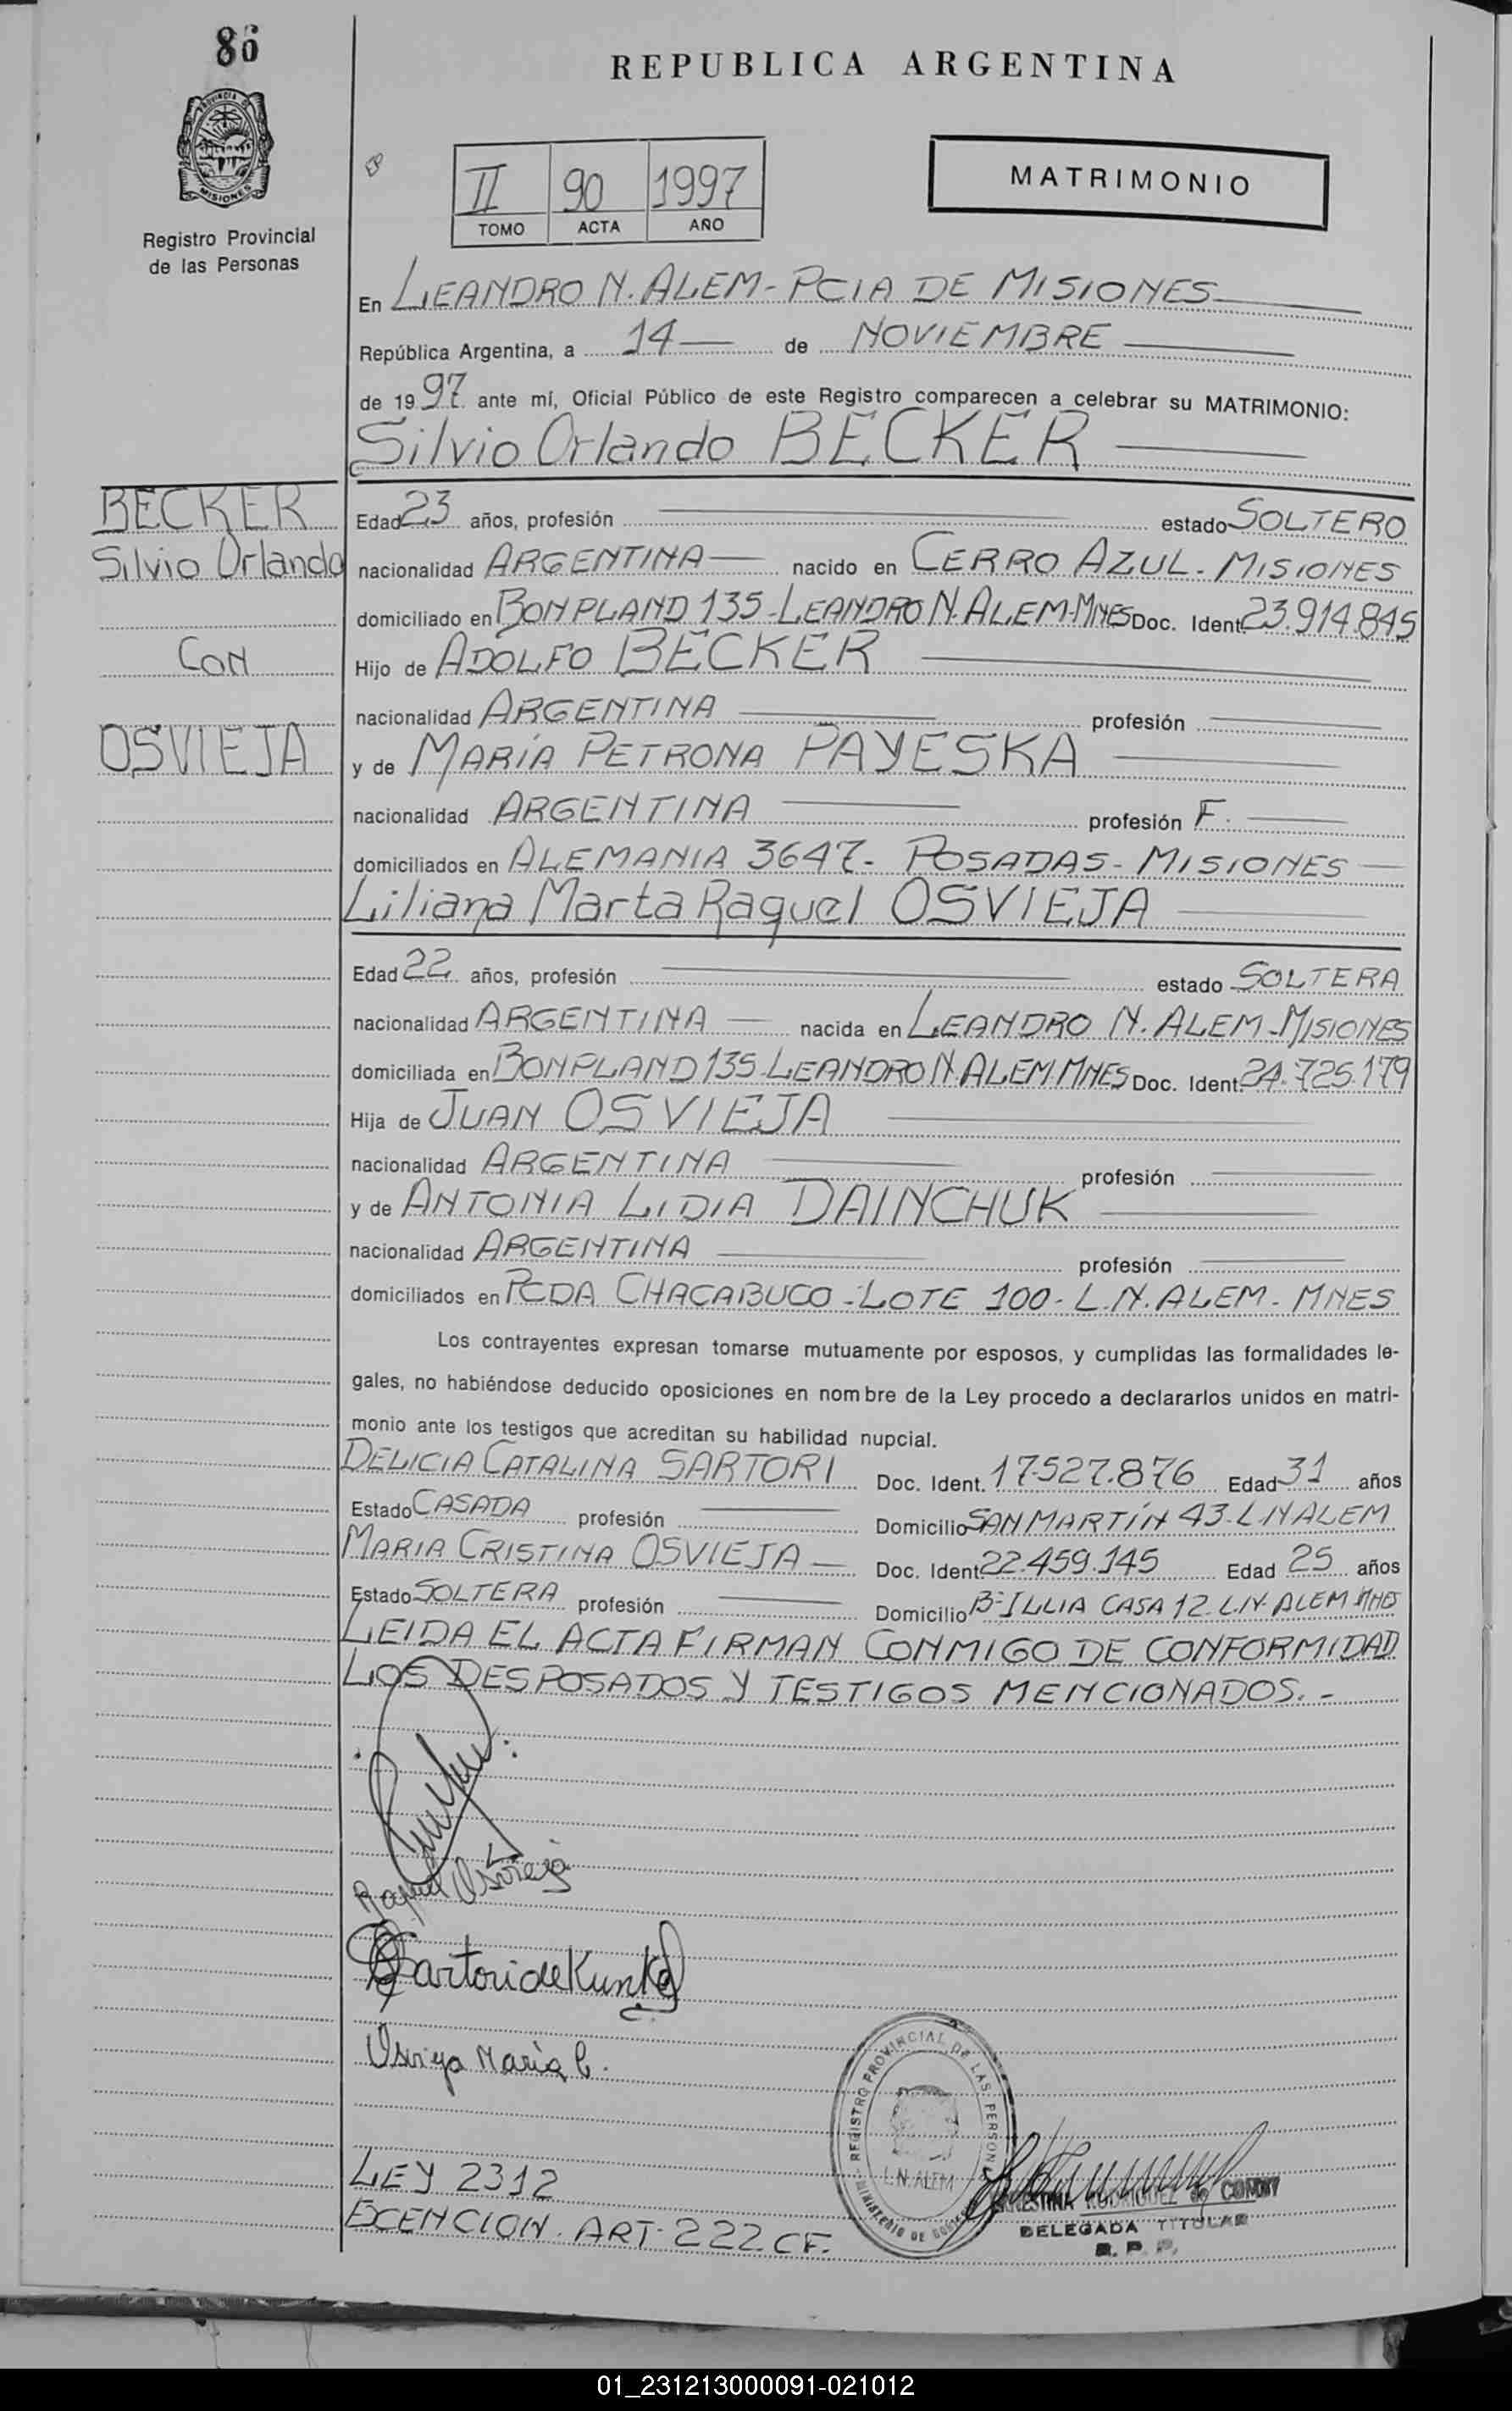 86
REPUBLICA ARGENTINA
MISIONES
Registro Provincial
de las Personas
II 90 1997
TOMO ACTA AÑO
MATRIMONIO
En LEANDRO N. ALEM - PCIA DE MISIONES
República Argentina, a 14 de NOVIEMBRE
de 1997 ante mí, Oficial Público de este Registro comparecen a celebrar su MATRIMONIO:
Silvio Orlando BECKER
BECKER
Silvio Orlando
CON
OSVIEJA
Edad 23 años, profesión estado SOLTERO
nacionalidad ARGENTINA nacido en CERRO AZUL - MISIONES
domiciliado en BONPLAND 135 - LEANDRO N. ALEM - MNES Doc. Ident. 23.914.845
Hijo de ADOLFO BECKER
nacionalidad ARGENTINA profesión
y de MARÍA PETRONA PAYESKA
nacionalidad ARGENTINA profesión F.
domiciliados en ALEMANIA 3647 - POSADAS - MISIONES
Liliana Marta Raquel OSVIEJA
Edad 22 años, profesión estado SOLTERA
nacionalidad ARGENTINA nacida en LEANDRO N. ALEM - MISIONES
domiciliada en BONPLAND 135 - LEANDRO N. ALEM MNES Doc. Ident. 24.725.179
Hija de JUAN OSVIEJA
nacionalidad ARGENTINA profesión
y de ANTONIA LIDIA DAINCHUK
nacionalidad ARGENTINA profesión
domiciliados en PCDA CHACABUCO - LOTE 100 - L.N. ALEM - MNES
Los contrayentes expresan tomarse mutuamente por esposos, y cumplidas las formalidades le-
gales, no habiéndose deducido oposiciones en nombre de la Ley procedo a declararlos unidos en matri-
monio ante los testigos que acreditan su habilidad nupcial.
DELICIA CATALINA SARTORI Doc. Ident. 17.527.876 Edad 31 años
Estado CASADA profesión Domicilio SAN MARTÍN 43 - L N ALEM
MARIA CRISTINA OSVIEJA Doc. Ident. 22.459.145 Edad 25 años
Estado SOLTERA profesión Domicilio Bº ILLIA CASA 12 - L.N. ALEM MNES
LEIDA EL ACTA FIRMAN CONMIGO DE CONFORMIDAD
LOS DESPOSADOS Y TESTIGOS MENCIONADOS. -
Raquel Osvieja
Sartori de Kunkel
Osvieja María C.
REGISTRO PROVINCIAL DE LAS PERSONAS
L.N. ALEM
MINISTERIO DE GOBIERNO
LEY 2312
EXCENCION. ART. 222 CF.
ERNESTINA RODRIGUEZ de
DELEGADA TITULAR
R. P. P.
01_231213000091-021012